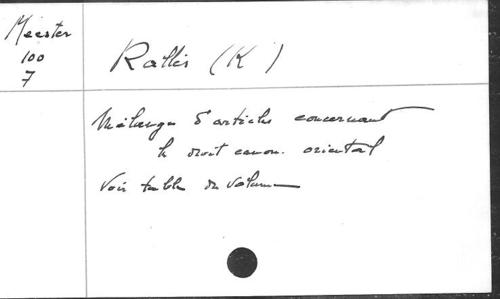 Meester
100
7
Rallis (K)
Mélanges d'articles concernant
le droit canon. oriental
Voir table du volume